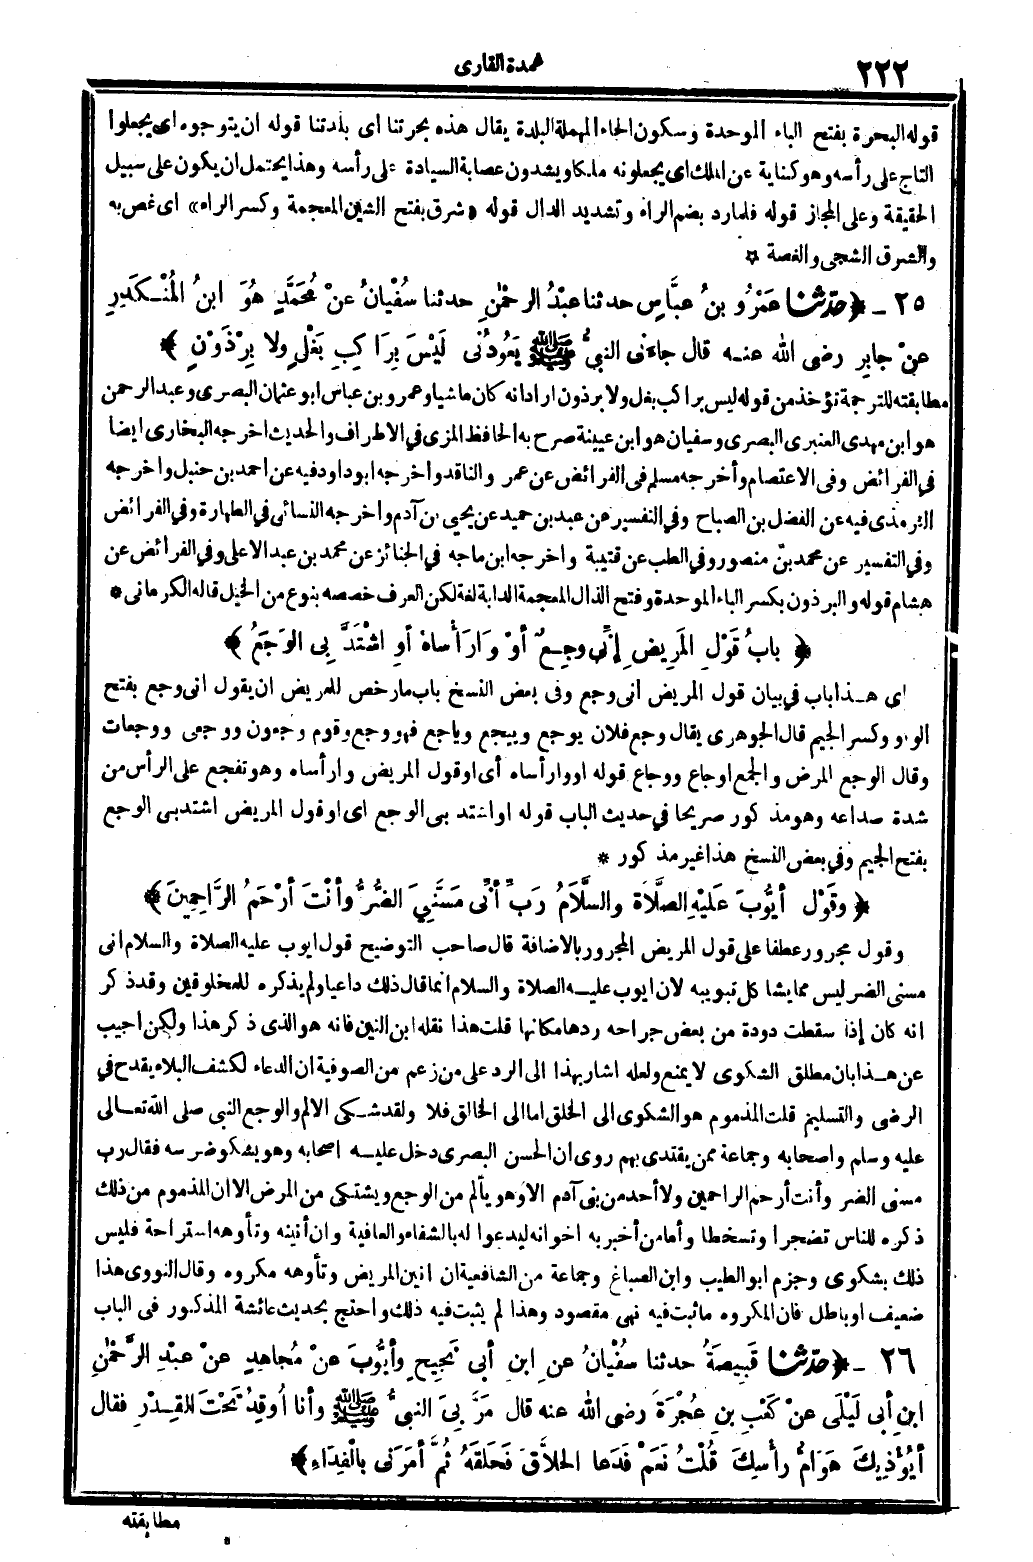 ٢٢٢
عمدة القارى
قوله البحرة بفتح الباء الموحدة وسكون الحاء المهملة البلدة يقال هذه بحرتنا اى بلدتنا قوله ان يتوجوه اى يجعلوا
التاج على رأسه وهو كناية عن الملك اى يجعلونه ملكا ويشدون عصابة السيادة على رأسه وهذا يحتمل ان يكون على سبيل
الحقيقة وعلى المجاز قوله فلما رد بضم الراء وتشديد الدال قوله «شرق بفتح الشين المعجمة وكسر الراء» اى غص به
والشرق الشجى والغصة *
٢٥ - ﴿ حدّثنا عَمْرُو بنُ عبَّاسٍ حدثنا عبْدُ الرحْمٰنِ حدثنا سُفْيانُ عنْ مُحَمَّدٍ هُوَ ابنُ المُنْـكَدِرِ
عنْ جابِرٍ رضى الله عنـه قال جاءَنى النبىُّ ﷺ يَعُودُنى لَيْسَ بِرَاكِبِ بَغْلٍ ولا بِرْذَوْنٍ ﴾
مطابقته للترجمة تؤخذ من قوله ليس براكب بغل ولا برذون اراد انه كان ماشيا وعمرو بن عباس ابو عثمان البصرى وعبد الرحمن
هو ابن مهدى العنبرى البصرى وسفيان هو ابن عيينة صرح به الحافظ المزى فى الاطراف والحديث اخرجه البخارى ايضا
فى الفرائض وفى الاعتصام وأخرجه مسلم فى الفرائض عن عمرو الناقد واخرجه ابو داود فيه عن احمد بن حنبل واخرجه
الترمذى فيه عن الفضل بن الصباح وفى التفسير عن عبد بن حميد عن يحيى بن آدم واخرجه النسائى فى الطهارة وفى الفرائض
وفى التفسير عن محمد بن منصور وفى الطب عن قتيبة واخرجه ابن ماجه فى الجنائز عن محمد بن عبد الاعلى وفى الفرائض عن
هشام قوله والبرذون بكسر الباء الموحدة وفتح الذال المعجمة الدابة لغة لكن العرف خصصه بنوع من الخيل قاله الكرمانى *
﴿ بابُ قَوْلِ المَرِيضِ إنِّى وجِـعٌ أوْ وَارَأْساهْ أوِ اشْتَدَّ بِى الوَجَعُ ﴾
اى هـذا باب فى بيان قول المريض انى وجع وفى بعض النسخ باب ما رخص للمريض ان يقول انى وجع بفتح
الواو وكسر الجيم قال الجوهرى يقال وجع فلان يوجع وييجع وياجع فهو وجع وقوم وجعون ووجعى ووجعات
وقال الوجع المرض والجمع اوجاع ووجاع قوله او وارأساه أى او قول المريض وارأساه وهو تفجع على الرأس من
شدة صداعه وهو مذكور صريحا فى حديث الباب قوله او اشتد بى الوجع اى او قول المريض اشتد بى الوجع
بفتح الجيم وفى بعض النسخ هذا غير مذكور *
﴿ وقَوْلِ أيُّوبَ عَليْهِ الصَّلاَة والسَّلاَمُ رَبِّ أنِّى مَسَّنِيَ الضُّرُّ وأنْتَ أرْحَمُ الرَّاحِمِينَ ﴾
وقول مجرور عطفا على قول المريض المجرور بالاضافة قال صاحب التوضيح قول ايوب عليه الصلاة والسلام انى
مسنى الضر ليس مما يشاكل تبويبه لان ايوب عليـه الصلاة والسلام انما قال ذلك داعيا ولم يذكره للمخلوقين وقد ذكر
انه كان إذا سقطت دودة من بعض جراحه ردها مكانها قلت هذا نقله ابن التين فانه هو الذى ذكر هذا ولكن اجيب
عن هـذا بان مطلق الشكوى لا يمنع ولعله اشار بهذا الى الرد على من زعم من الصوفية ان الدعاء لكشف البلاء يقدح فى
الرضى والتسليم قلت المذموم هو الشكوى الى الخلق اما الى الخالق فلا ولقد شـكى الالم والوجع النبى صلى الله تعـالى
عليه وسلم واصحابه وجماعة ممن يقتدى بهم روى ان الحسن البصرى دخل عليـه اصحابه وهو يشكو ضرسه فقال رب
مسنى الضر وأنت أرحم الراحمين ولا أحد من بنى آدم الا وهو يألم من الوجع ويشتكى من المرض الا ان المذموم من ذلك
ذكره للناس تضجرا وتسخطا وأما من أخبر به اخوانه ليدعوا له بالشفاء والعافية وان أنينه وتأوهه استراحة فليس
ذلك بشكوى وجزم ابو الطيب وابن الصباغ وجماعة من الشافعية ان انين المريض وتأوهه مكروه وقال النووى هذا
ضعيف او باطل فان المكروه ما ثبت فيه نهى مقصود وهذا لم يثبت فيه ذلك واحتج بحديث عائشة المذكور فى الباب
٢٦ - ﴿ حدّثنا قَبِيصَةُ حدثنا سُفْيانُ عنِ ابنِ أبى نَجِيحٍ وأيُّوبَ عنْ مُجاهِدٍ عنْ عبْدِ الرَّحْمٰنِ
ابنِ أبى لَيْلَى عنْ كَعْبِ بنِ عُجْرَةَ رضى الله عنه قال مَرَّ بِىَ النبىُّ ﷺ وأنا أُوقِدُ تَحْتَ القِـدْرِ فقال
أيُؤْذِيكَ هَوَامُّ رأْسِكَ قُلْتُ نَعَمْ فَدَعا الحَلاَّقَ فَحَلَقَهُ ثُمَّ أمَرَنى بالْفِدَاءِ ﴾
مطابقته